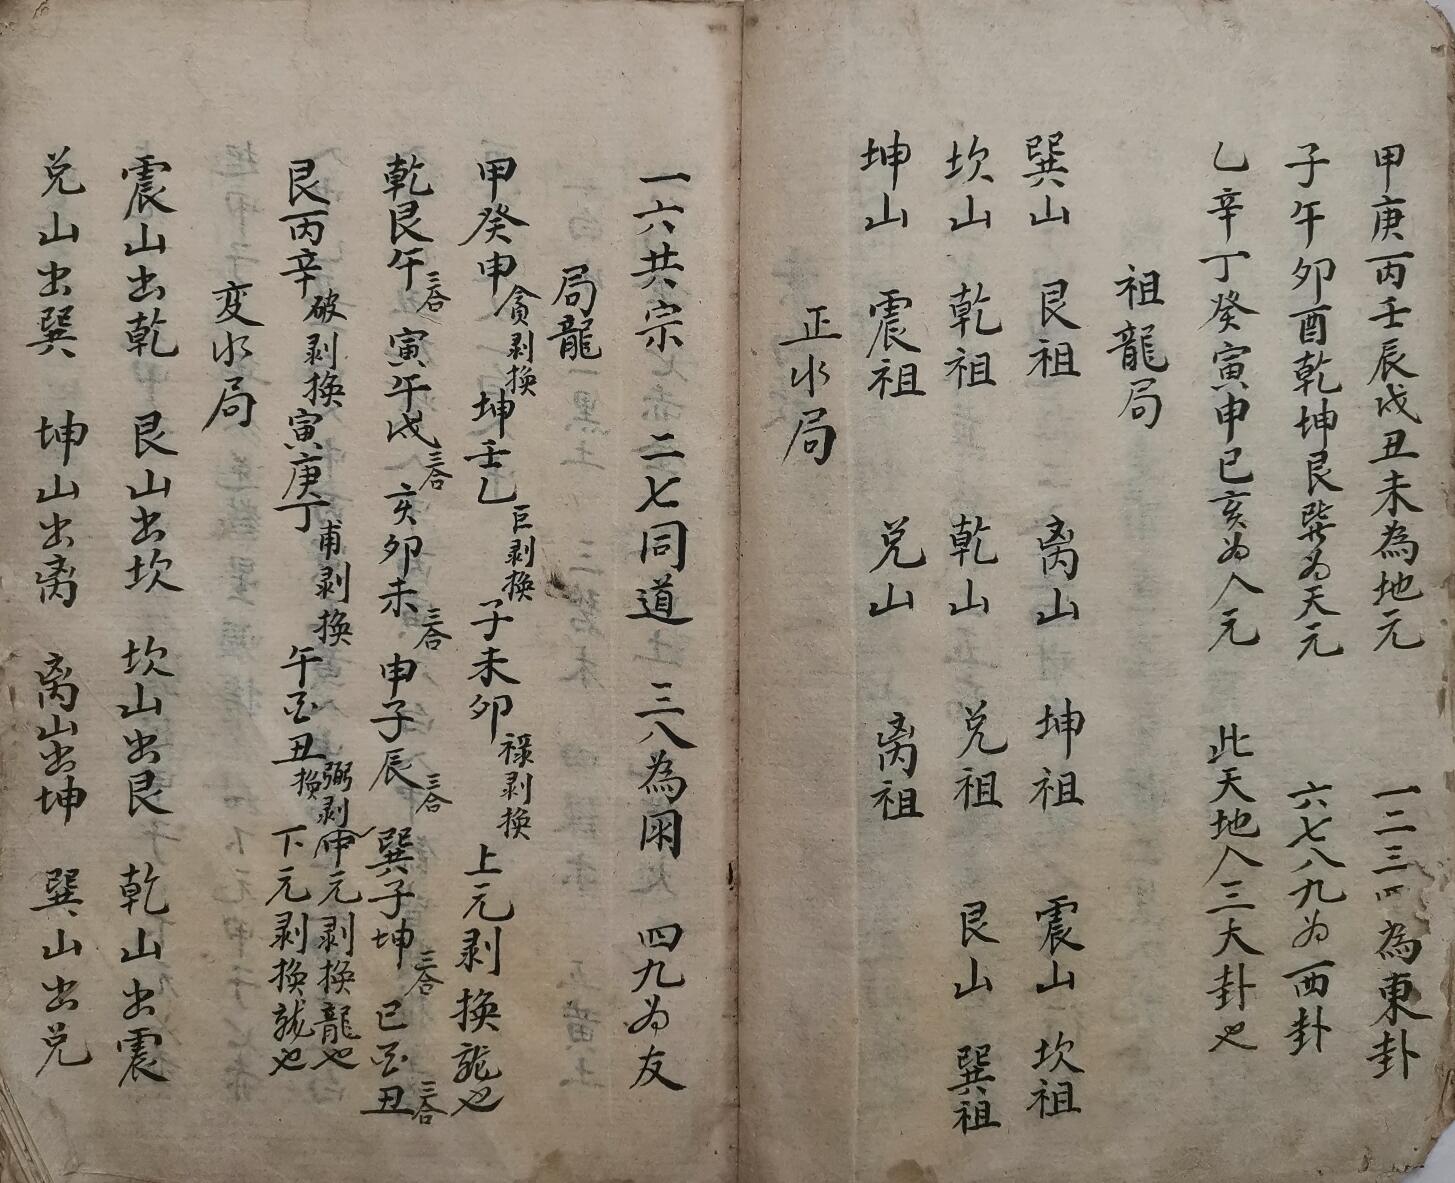 甲庚丙壬辰戌丑未為地元 一二三四為東卦
子午卯酉乾坤艮巽为天元 六七八九为西卦
乙辛丁癸寅申巳亥为人元 此天地人三大卦也
祖龍局
巽山艮祖 离山坤祖 震山坎祖
坎山乾祖 乾山兑祖 艮山巽祖
坤山震祖 兑山离祖
正水局
一六共宗 二七同道 三八為朋 四九为友
局龍
甲癸申貪剥換 坤壬乙巨剥換 子未卯禄剥換 上元剥換龍也
乾艮午三合 寅午戌三合 亥卯未三合 申子辰三合 巽子坤三合 巳酉丑三合
艮丙辛破剥換 寅庚丁甫剥換 午酉丑弼剥換 中元剥換龍也 下元剥換龍也
変水局
震山出乾 艮山出坎 坎山出艮 乾山出震
兑山出巽 坤山出离 离山出坤 巽山出兑